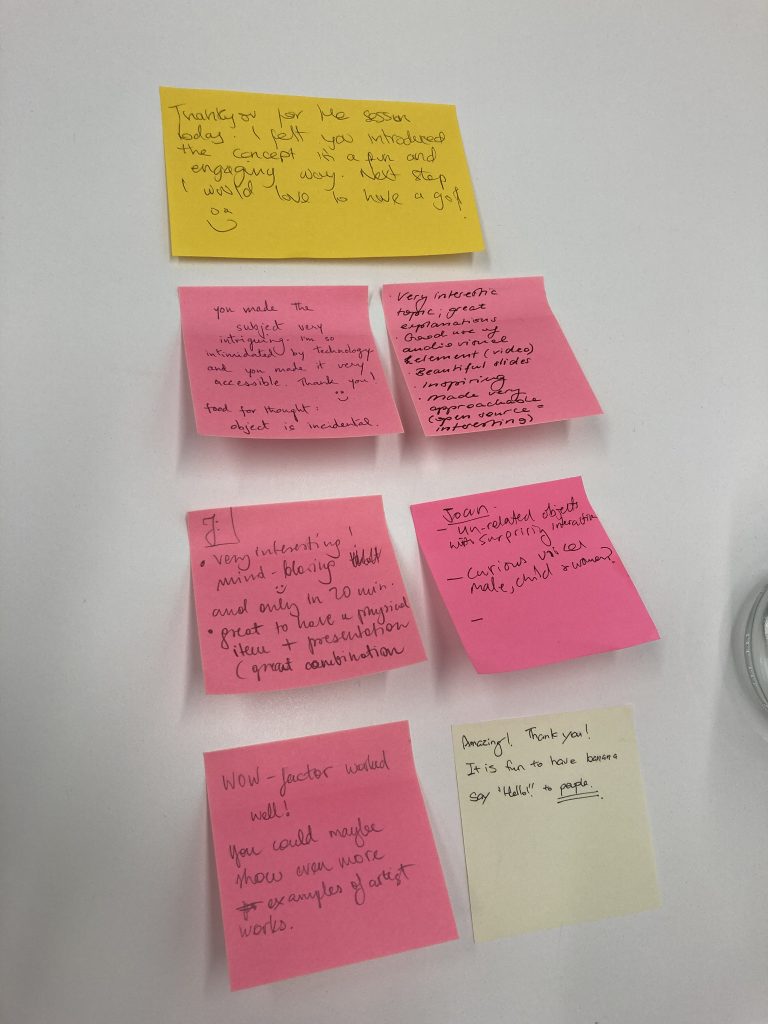 Thankyou for the session
today. I felt you introduced
the concept in a fun and
engaging way. Next step
I would love to have a go!
you made the
subject very
intriguing. I'm so
intimidated by technology
and you made it very
accessible. Thank you!
food for thought:
object is incidental.
· Very interestic
topic, great
explanations
· Good use of
audio visual
element (video)
· Beautiful slides
· Inspiring
· Made very
approachable
(open source =
interesting)
J:
• Very interesting!
mind-blowing
and only in 20 min.
• great to have a physical
item + presentation
(great combination
Joan
- Un-related objects
with surprisig interaction
- Curious voices
male, child & woman?
-
WOW-factor worked
well!
you could maybe
show even more
examples of artist
works.
Amazing! Thank you!
It is fun to have banana
say "Hello!" to people.